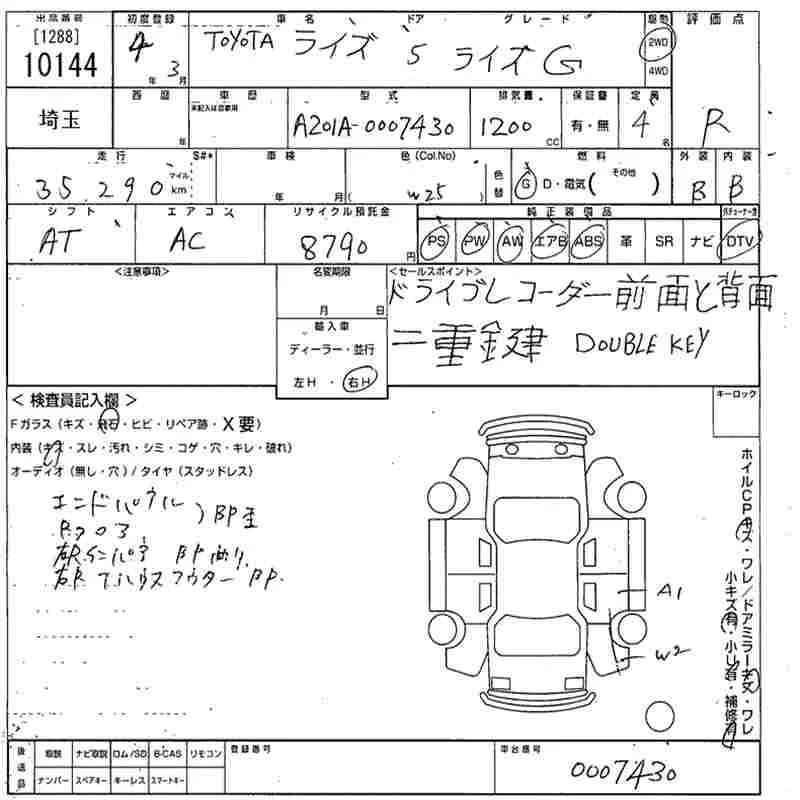 出品番号 初度登録 車名 ドア グレード 駆動 評価点
[1288]
10144
4年 3月
TOYOTA ライズ 5 ライズ G
2WD
4WD
R
埼玉
西暦 車歴 型式 排気量 保証書 定員
年
未記入は自家用
A201A-0007430
1200 CC
有・無
4名
走行 S#* 車検 色(Col.No) 色替 燃料 外装 内装
35,290 マイル km
年 月
(W25)
G D・電気( その他 )
B B
シフト エアコン リサイクル預託金 純正装備品
AT AC 8790円
PS PW AW エアB ABS 革 SR ナビ DTV
<注意事項> 名変期限 <セールスポイント>
月 日
ドライブレコーダー前面と背面
輸入車
ディーラー・並行
二重鍵 DOUBLE KEY
左H・右H
< 検査員記入欄 > キーロック
Fガラス(キズ・飛石・ヒビ・リペア跡・X要)
内装(キズ・スレ・汚れ・シミ・コゲ・穴・キレ・破れ)
オーディオ(無し・穴)/タイヤ(スタッドレス)
エンドパネル
A1
W2
ホイルCPキズ・ワレ/ドアミラーキズ・ワレ
小キズ有・小凹有・補修有
後送品 取説 ナビ取説 ロム/SD B-CAS リモコン
ナンバー スペアキー キーレス スマートキー
登録番号 車台番号
0007430